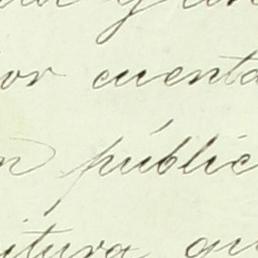 or cuenta
n públic
itura qu